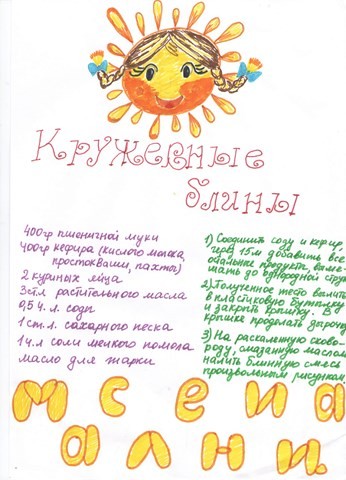 Кружевные
блины
400гр пшеничной муки
400гр кефира (кислого молока,
простокваши, пахты)
2 куриных яйца
3стл растительного масла
0,5 ч. л. соды
1 ст. л. сахарного песка
1 ч.л соли мелкого помола
масло для жарки
1) Соединить соду и кефир,
через 15м добавить все
остальные продукты, выме-
шать до однородной струк
2) Полученное тесто вылить
в пластиковую бутылку
и закрыть крышку. В
крышке проделать дырочк
3) На раскаленную сково-
роду, смазанную маслом
налить блинную смесь
произвольным рисунком.
м с е и а
а л н ц